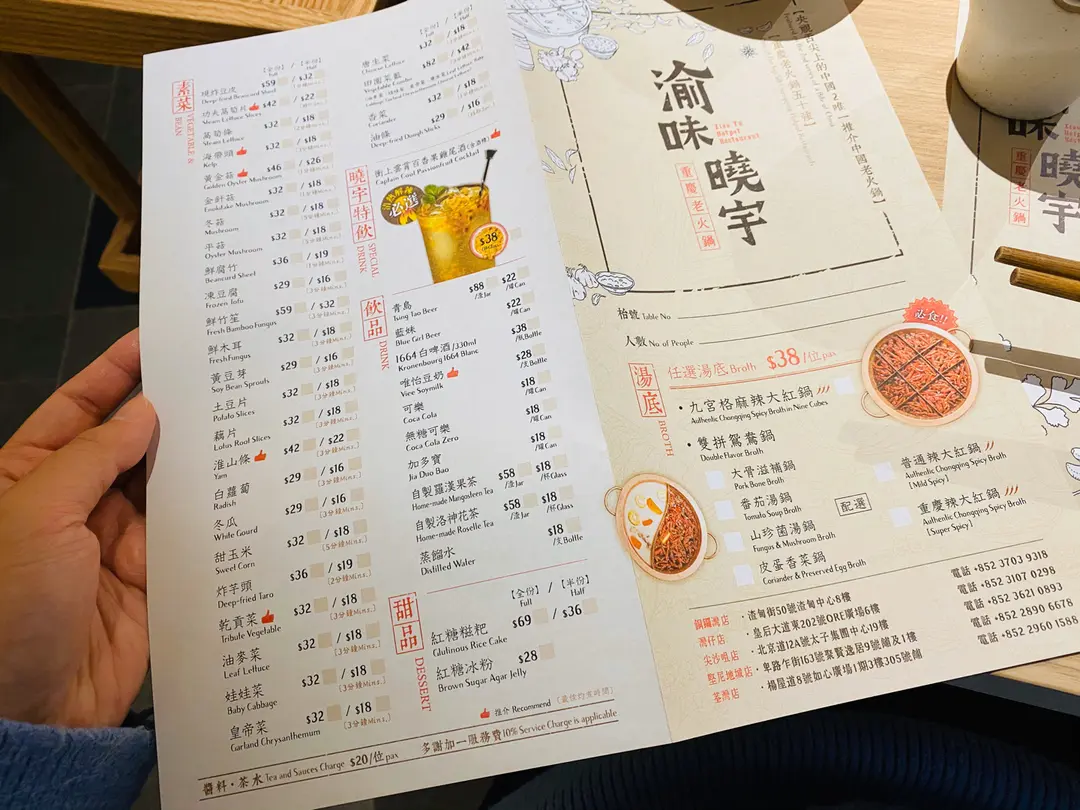 素菜 VEGETABLE & BEAN
【全份】 / 【半份】
Full Half
炸豆皮 $59 / $32
Deep-fried Beancurd Sheet
功夫萵筍片 $42 / $22
Steam Lettuce Slices
萵筍條 $32 / $18
Steam Lettuce
海帶頭 $32 / $18
Kelp
黃金菇 $46 / $26
Golden Oyster Mushroom
金針菇 $32 / $18
Enokitake Mushroom
冬菇 $32 / $18
Mushroom
平菇 $32 / $18
Oyster Mushroom
鮮腐竹 $36 / $19
Beancurd Sheet
凍豆腐 $29 / $16
Frozen Tofu
鮮竹笙 $59 / $32
Fresh Bamboo Fungus
鮮木耳 $32 / $18
Fresh Fungus
黃豆芽 $29 / $16
Soy Bean Sprouts
土豆片 $32 / $18
Potato Slices
藕片 $32 / $18
Lotus Root Slices
淮山條 $42 / $22
Yam
白蘿蔔 $29 / $16
Radish
冬瓜 $29 / $16
White Gourd
甜玉米 $32 / $18
Sweet Corn
炸芋頭 $36 / $19
Deep-fried Taro
乾貢菜 $32 / $18
Tribute Vegetable
油麥菜 $32 / $18
Leaf Lettuce
娃娃菜 $32 / $18
Baby Cabbage
皇帝菜 $32 / $18
Garland Chrysanthemum
醬料・茶水 Tea and Sauces Charge $20/位pax
【全份】 / 【半份】
Full Half
唐生菜 $32 / $18
Chinese Lettuce
田園菜籃 $82 / $42
Vegetable Combo
香菜 $32 / $18
Coriander
油條 $29 / $16
Deep-fried Dough Sticks
曉宇特飲 SPECIAL DRINK
衝上雲霄百香果雞尾酒(含酒精)
Captain Cool Passionfruit Cocktail
必選
$38
飲品 DRINK
青島 $88 /渣Jar $22 /罐Can
Tsing Tao Beer
藍妹 $22 /罐Can
Blue Girl Beer
1664白啤酒/330ml $38 /瓶Bottle
Kronenbourg 1664 Blanc
唯怡豆奶 $28 /支Bottle
Viee Soymilk
可樂 $18 /罐Can
Coca Cola
無糖可樂 $18 /罐Can
Coca Cola Zero
加多寶 $18 /罐Can
Jia Duo Bao
自製羅漢果茶 $58 /渣Jar $18 /杯Glass
Home-made Mangosteen Tea
自製洛神花茶 $58 /渣Jar $18 /杯Glass
Home-made Roselle Tea
蒸餾水 $18 /支Bottle
Distilled Water
甜品 DESSERT
【全份】 / 【半份】
Full Half
紅糖糍粑 $69 / $36
Glutinous Rice Cake
紅糖冰粉 $28
Brown Sugar Agar Jelly
推介 Recommend 〔最佳灼煮時間〕
多謝加一服務費10% Service Charge is applicable
渝味曉宇
Xiao Yu
Hotpot
Restaurant
重慶老火鍋
【央視舌尖上的中國2唯一推介中國老火鍋】
【重慶老火鍋五十強】
枱號 Table No
人數 No of People
湯底 BROTH
任選湯底 Broth $38/位pax
必食!!
・九宮格麻辣大紅鍋
Authentic Chongqing Spicy Broth in Nine Cubes
・雙拼鴛鴦鍋
Double Flavor Broth
大骨滋補鍋
Pork Bone Broth
番茄湯鍋
Tomato Soup Broth
山珍菌湯鍋
Fungus & Mushroom Broth
皮蛋香菜鍋
Coriander & Preserved Egg Broth
配選
普通辣大紅鍋
Authentic Chongqing Spicy Broth
[Mild Spicy]
重慶辣大紅鍋
Authentic Chongqing Spicy Broth
[Super Spicy]
銅鑼灣店 ・渣甸街50號渣甸中心8樓 電話 +852 3703 9318
灣仔店 ・皇后大道東202號ORE廣場6樓 電話 +852 3107 0298
尖沙咀店 ・北京道12A號太子集團中心19樓 電話 +852 3621 0893
堅尼地城店 ・卑路乍街163號聚賢逸居9號舖及1樓 電話 +852 2890 6678
荃灣店 ・楊屋道8號如心廣場1期3樓305號舖 電話 +852 2960 1588
曉宇
重慶老火鍋